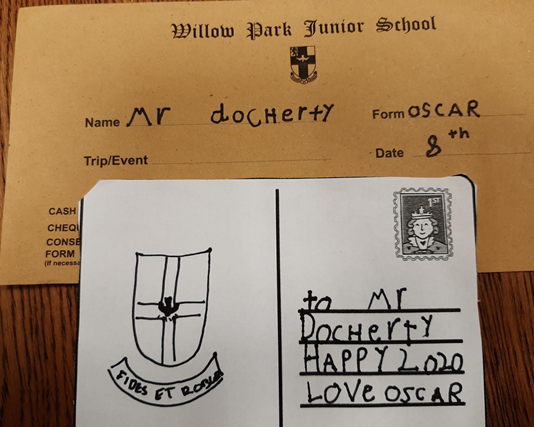 Willow Park Junior School
Name Mr docHerty
Form OSCAR
Trip/Event
Date 8th
CASH
CHEQU
CONSE
FORM
(If necessa
1ST
FIDES ET
to Mr
DocHerty
HAPPY 2020
LOVE OSCAR